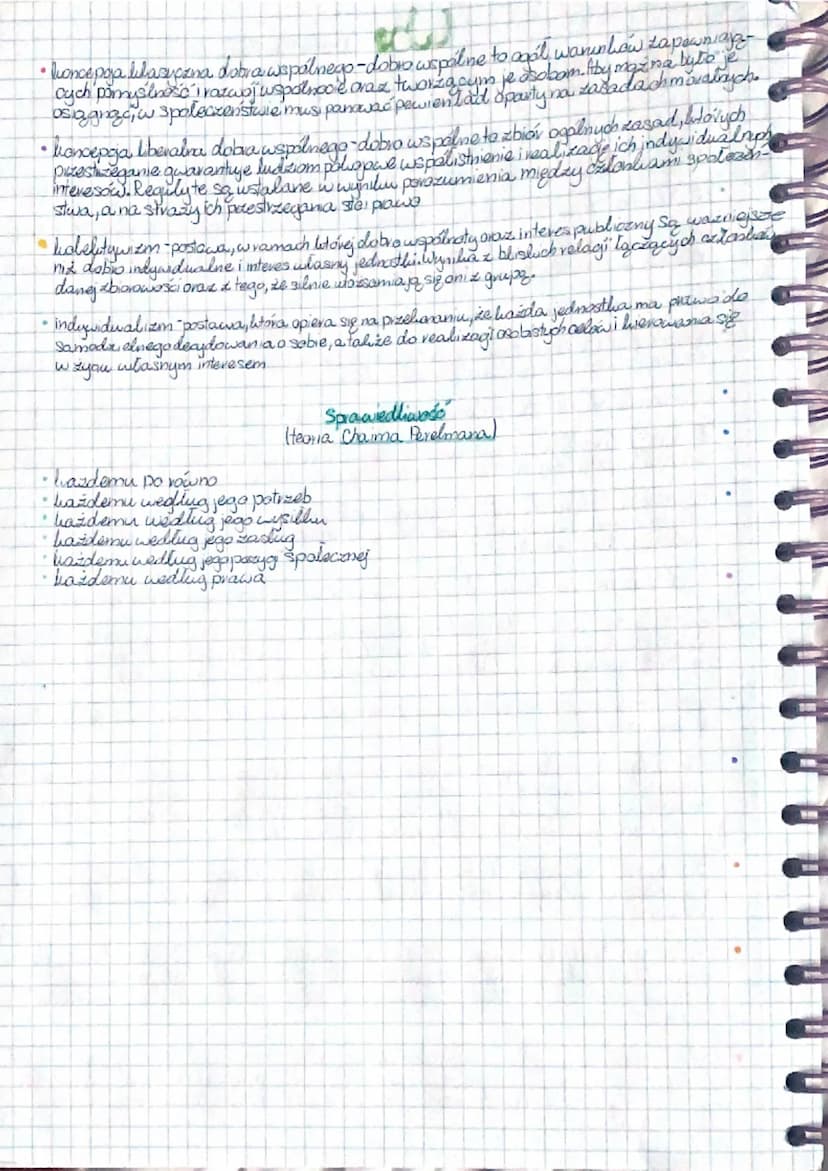 • koncepcja klasyczna dobra wspólnego - dobro wspólne to ogół warunków zapewniają-
cych pomyślność i rozwój wspólnocie oraz tworzącym je osobom. Aby można było je
osiągnąć, w społeczeństwie musi panować pewien ład oparty na zasadach moralnych.
• koncepcja liberalna dobra wspólnego - dobro wspólne to zbiór ogólnych zasad, których
przestrzeganie gwarantuje ludziom pokojowe współistnienie i realizację ich indywidualnych
interesów. Reguły te są ustalane w wyniku porozumienia między członkami społeczeń-
stwa, a na straży ich przestrzegania stoi prawo
• kolektywizm - postawa, w ramach której dobro wspólnoty oraz interes publiczny są ważniejsze
niż dobro indywidualne i interes własny jednostki. Wynika z bliskich relacji łączących członków
danej zbiorowości oraz z tego, że silnie utożsamiają się oni z grupą.
• indywidualizm - postawa, która opiera się na przekonaniu, że każda jednostka ma prawo do
samodzielnego decydowania o sobie, a także do realizacji osobistych celów i kierowania się
w życiu własnym interesem
Sprawiedliwość
(teoria Chaima Perelmana)
• każdemu po równo
• każdemu według jego potrzeb
• każdemu według jego wysiłku
• każdemu według jego zasług
• każdemu według jego pozycji społecznej
• każdemu według prawa